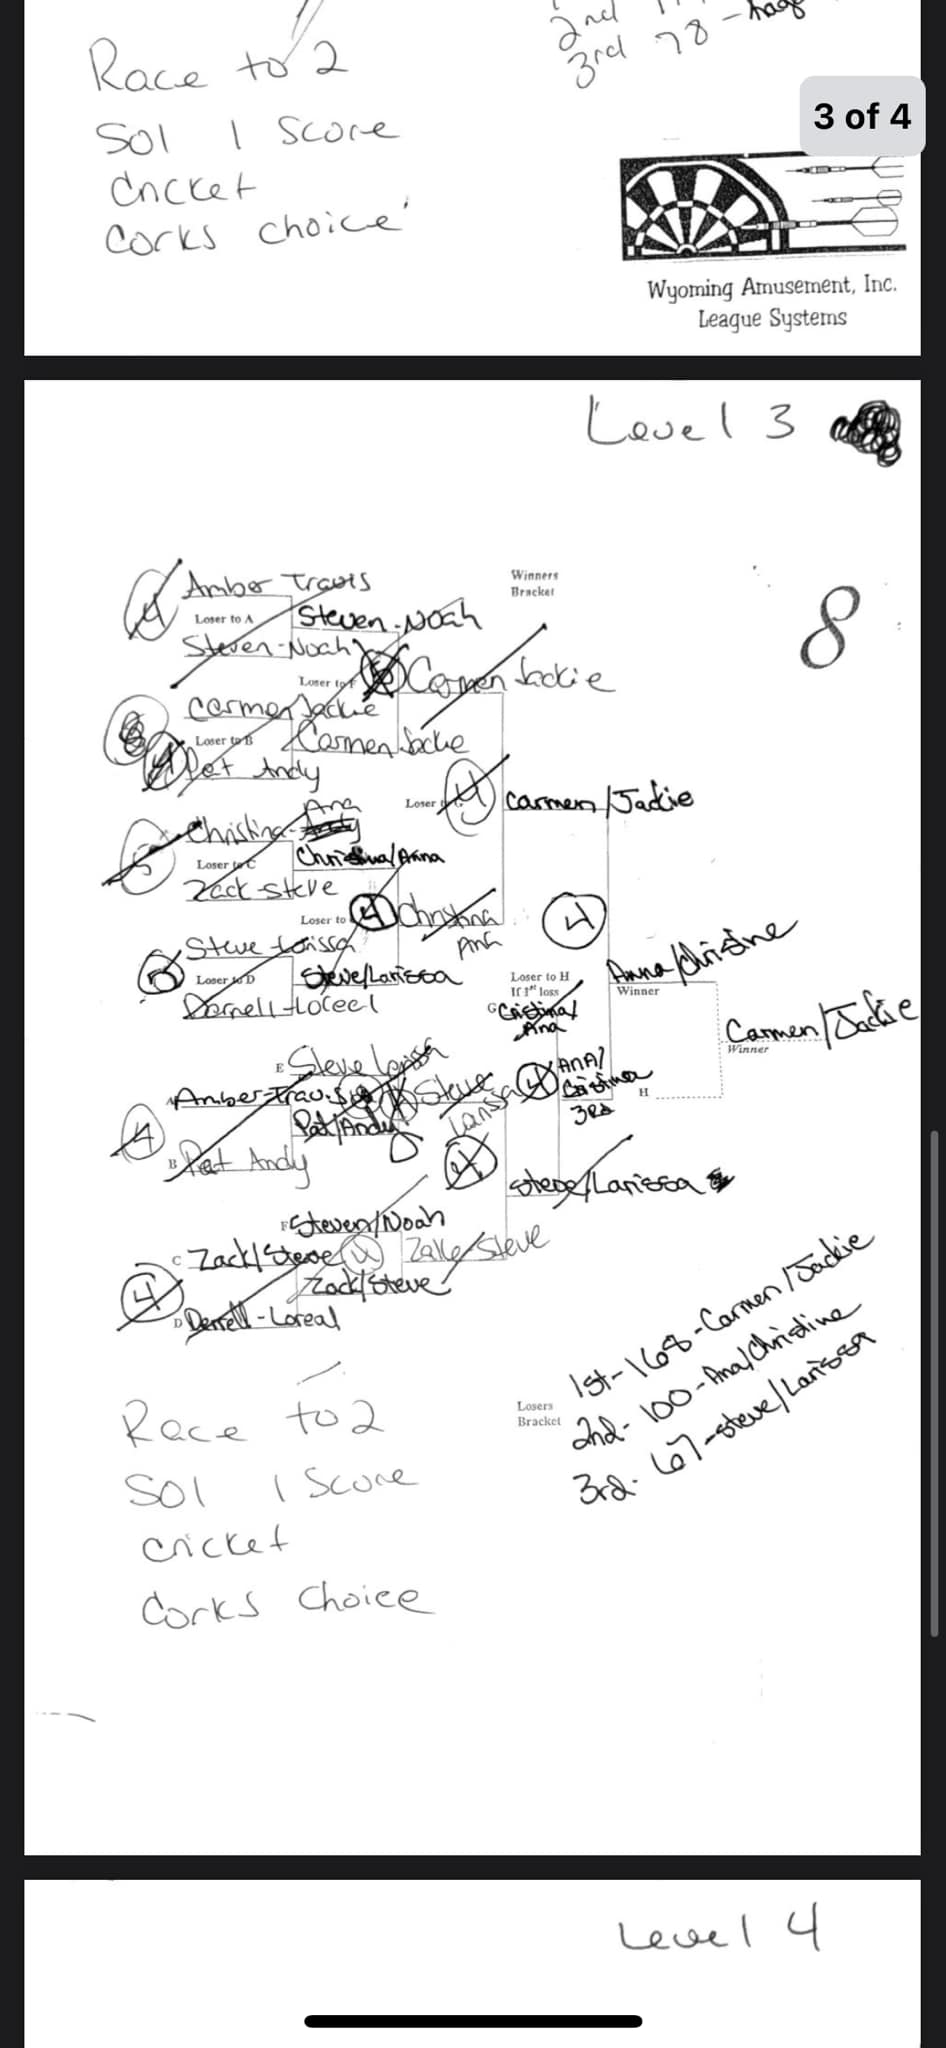 2nd
3rd 78 -
Race to 2
501 1 Score
Cricket
Corks choice
3 of 4
Wyoming Amusement, Inc.
League Systems
Level 3
8
Winners
Bracket
Amber Travis
Loser to A
Steven-Noah
Steven-Noah
Loser to F
Carmen Jackie
Carmen Jackie
Loser to B
Carmen Jackie
Pat Andy
4
Loser
Carmen/Jackie
Christina- Ana
Loser to C
Christina/Anna
Zack-Steve
Loser to
4
Christina
Ana
4
Steve Larissa
Loser to D
Steve/Larissa
Darnell-Loreel
Loser to H
If 1st loss
Anna/Christine
Winner
G Cristina/
Ana
Carmen/Jackie
Winner
E Steve Larissa
A Amber-Travis
Steve
Larissa
4
ANA/
Cristina
3RD
H
4
Pat/Andy
B Pat Andy
4
Steve/Larissa
F Steven/Noah
C Zack/Steve
4
Zake/Steve
Zack/Steve
4
D Derrell-Loreal
1st-168-Carmen/Jackie
2nd-100-Ana/Christine
3rd-67-Steve/Larissa
Losers
Bracket
Race to 2
501 1 Score
Cricket
Corks Choice
Level 4